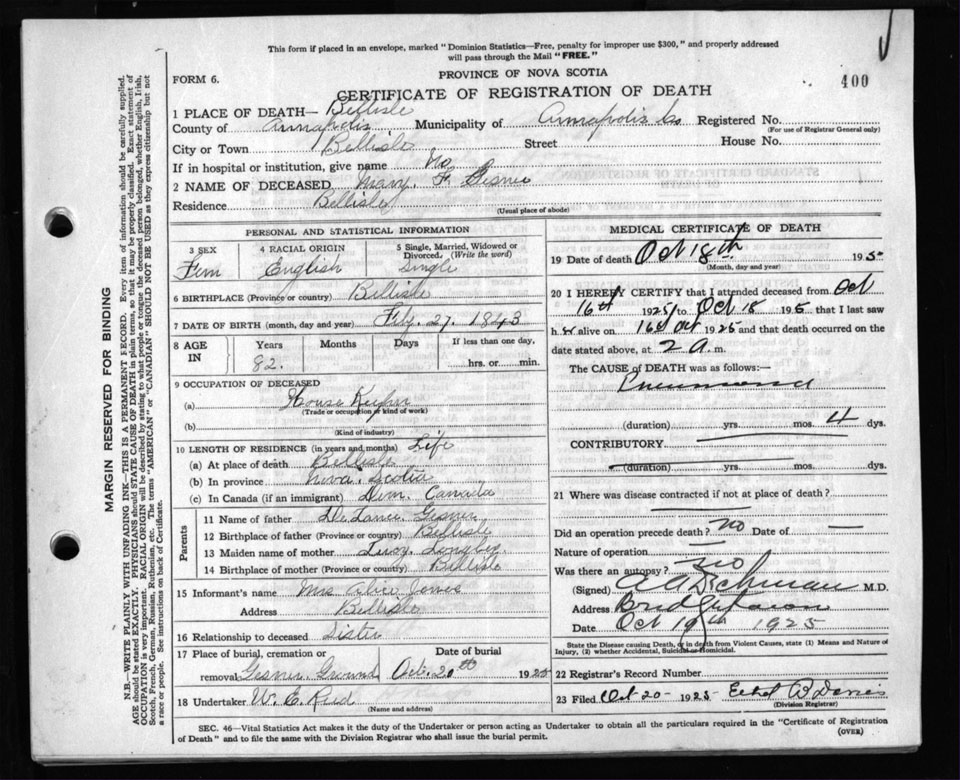 This form if placed in an envelope, marked "Dominion Statistics—Free, penalty for improper use $300," and properly addressed
will pass through the Mail "FREE."
PROVINCE OF NOVA SCOTIA
FORM 6.
400
CERTIFICATE OF REGISTRATION OF DEATH
1 PLACE OF DEATH— Bellisle
County of Annapolis Municipality of Annapolis Co Registered No.
(For use of Registrar General only)
City or Town Bellisle Street House No.
If in hospital or institution, give name No
2 NAME OF DECEASED Mary. F. Gesner
Residence Bellisle
(Usual place of abode)
PERSONAL AND STATISTICAL INFORMATION
3 SEX 4 RACIAL ORIGIN 5 Single, Married, Widowed or
Divorced. (Write the word)
Fem English Single
6 BIRTHPLACE (Province or country) Bellisle
7 DATE OF BIRTH (month, day and year) 27. 1843
8 AGE IN Years Months Days If less than one day,
82. hrs. or min.
9 OCCUPATION OF DECEASED
(a) House Keeper
(Trade or occupation or kind of work)
(b)
(Kind of industry)
10 LENGTH OF RESIDENCE (in years and months) Life
(a) At place of death Bellisle
(b) In province Nova Scotia
(c) In Canada (if an immigrant) Dom. Canada
Parents
11 Name of father Gesner
12 Birthplace of father (Province or country) Bellisle
13 Maiden name of mother
14 Birthplace of mother (Province or country) Bellisle
15 Informant's name Mrs Alice
Address Bellisle
16 Relationship to deceased Sister
17 Place of burial, cremation or Date of burial
removal Gesner Ground Oct. 20th 1925
18 Undertaker W. E. Reed
(Name and address)
MEDICAL CERTIFICATE OF DEATH
19 Date of death Oct 18th 1925
(Month, day and year)
20 I HEREBY CERTIFY that I attended deceased from Oct
16th 1925 to Oct 18 1925 that I last saw
h er alive on 16th Oct 1925 and that death occurred on
date stated above, at 2 a. m.
The CAUSE of DEATH was as follows:—
Pneumonia
(duration) yrs. mos. 4 dys.
CONTRIBUTORY
(duration) yrs. mos. dys.
21 Where was disease contracted if not at place of death?
Did an operation precede death? no Date of —
Nature of operation —
Was there an autopsy? no
(Signed) M.D.
Address Bridgetown
Date Oct 19th 1925
State the Disease causing Death, or in death from Violent Causes, state (1) Means and Nature of
Injury, (2) whether Accidental, Suicidal or Homicidal.
22 Registrar's Record Number
23 Filed Oct 20 - 1925 Ethel
(Division Registrar)
SEC. 46—Vital Statistics Act makes it the duty of the Undertaker or person acting as Undertaker to obtain all the particulars required in the "Certificate of Registration
of Death" and to file the same with the Division Registrar who shall issue the burial permit.
(OVER)
MARGIN RESERVED FOR BINDING
N.B.—WRITE PLAINLY WITH UNFADING INK—THIS IS A PERMANENT RECORD. Every item of information should be carefully supplied.
AGE should be stated EXACTLY. PHYSICIANS should STATE CAUSE OF DEATH in plain terms, so that it may be properly classified. Exact statement of
OCCUPATION is very important. RACIAL ORIGIN will be described by stating to what people or race the deceased person belonged, whether English, Irish,
Scotch, French, German, Russian, Ruthenian, etc. The terms "AMERICAN" or "CANADIAN" SHOULD NOT BE USED as they express citizenship but not
a race or people. See instructions on back of Certificate.